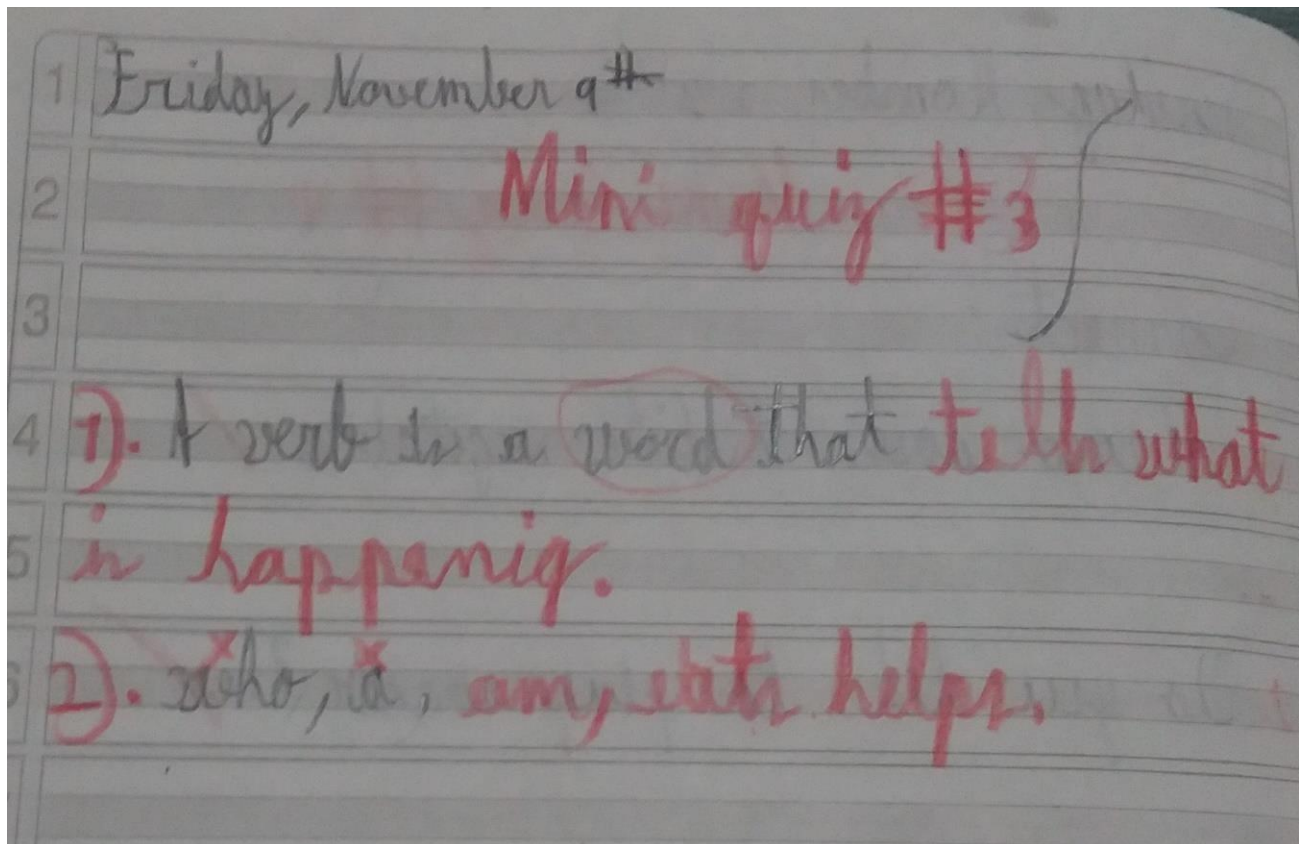 1 Friday, November 9th
2 Mini quiz #3
3
4 1). A verb is a word that tells what
5 is happenig.
6 2). who, a, am, eats helps.